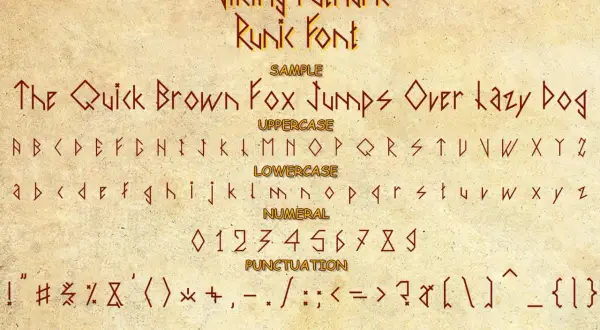 Viking Futhark
Runic Font
SAMPLE
The Quick Brown Fox Jumps Over Lazy Dog
UPPERCASE
A B C D E F G H I J K L M N O P Q R S T U V W X Y Z
LOWERCASE
a b c d e f g h i j k l m n o p q r s t u v w x y z
NUMERAL
0 1 2 3 4 5 6 7 8 9
PUNCTUATION
! " # $ % & ' ( ) * + , - . / : ; < = > ? @ [ \ ] ^ _ { | }